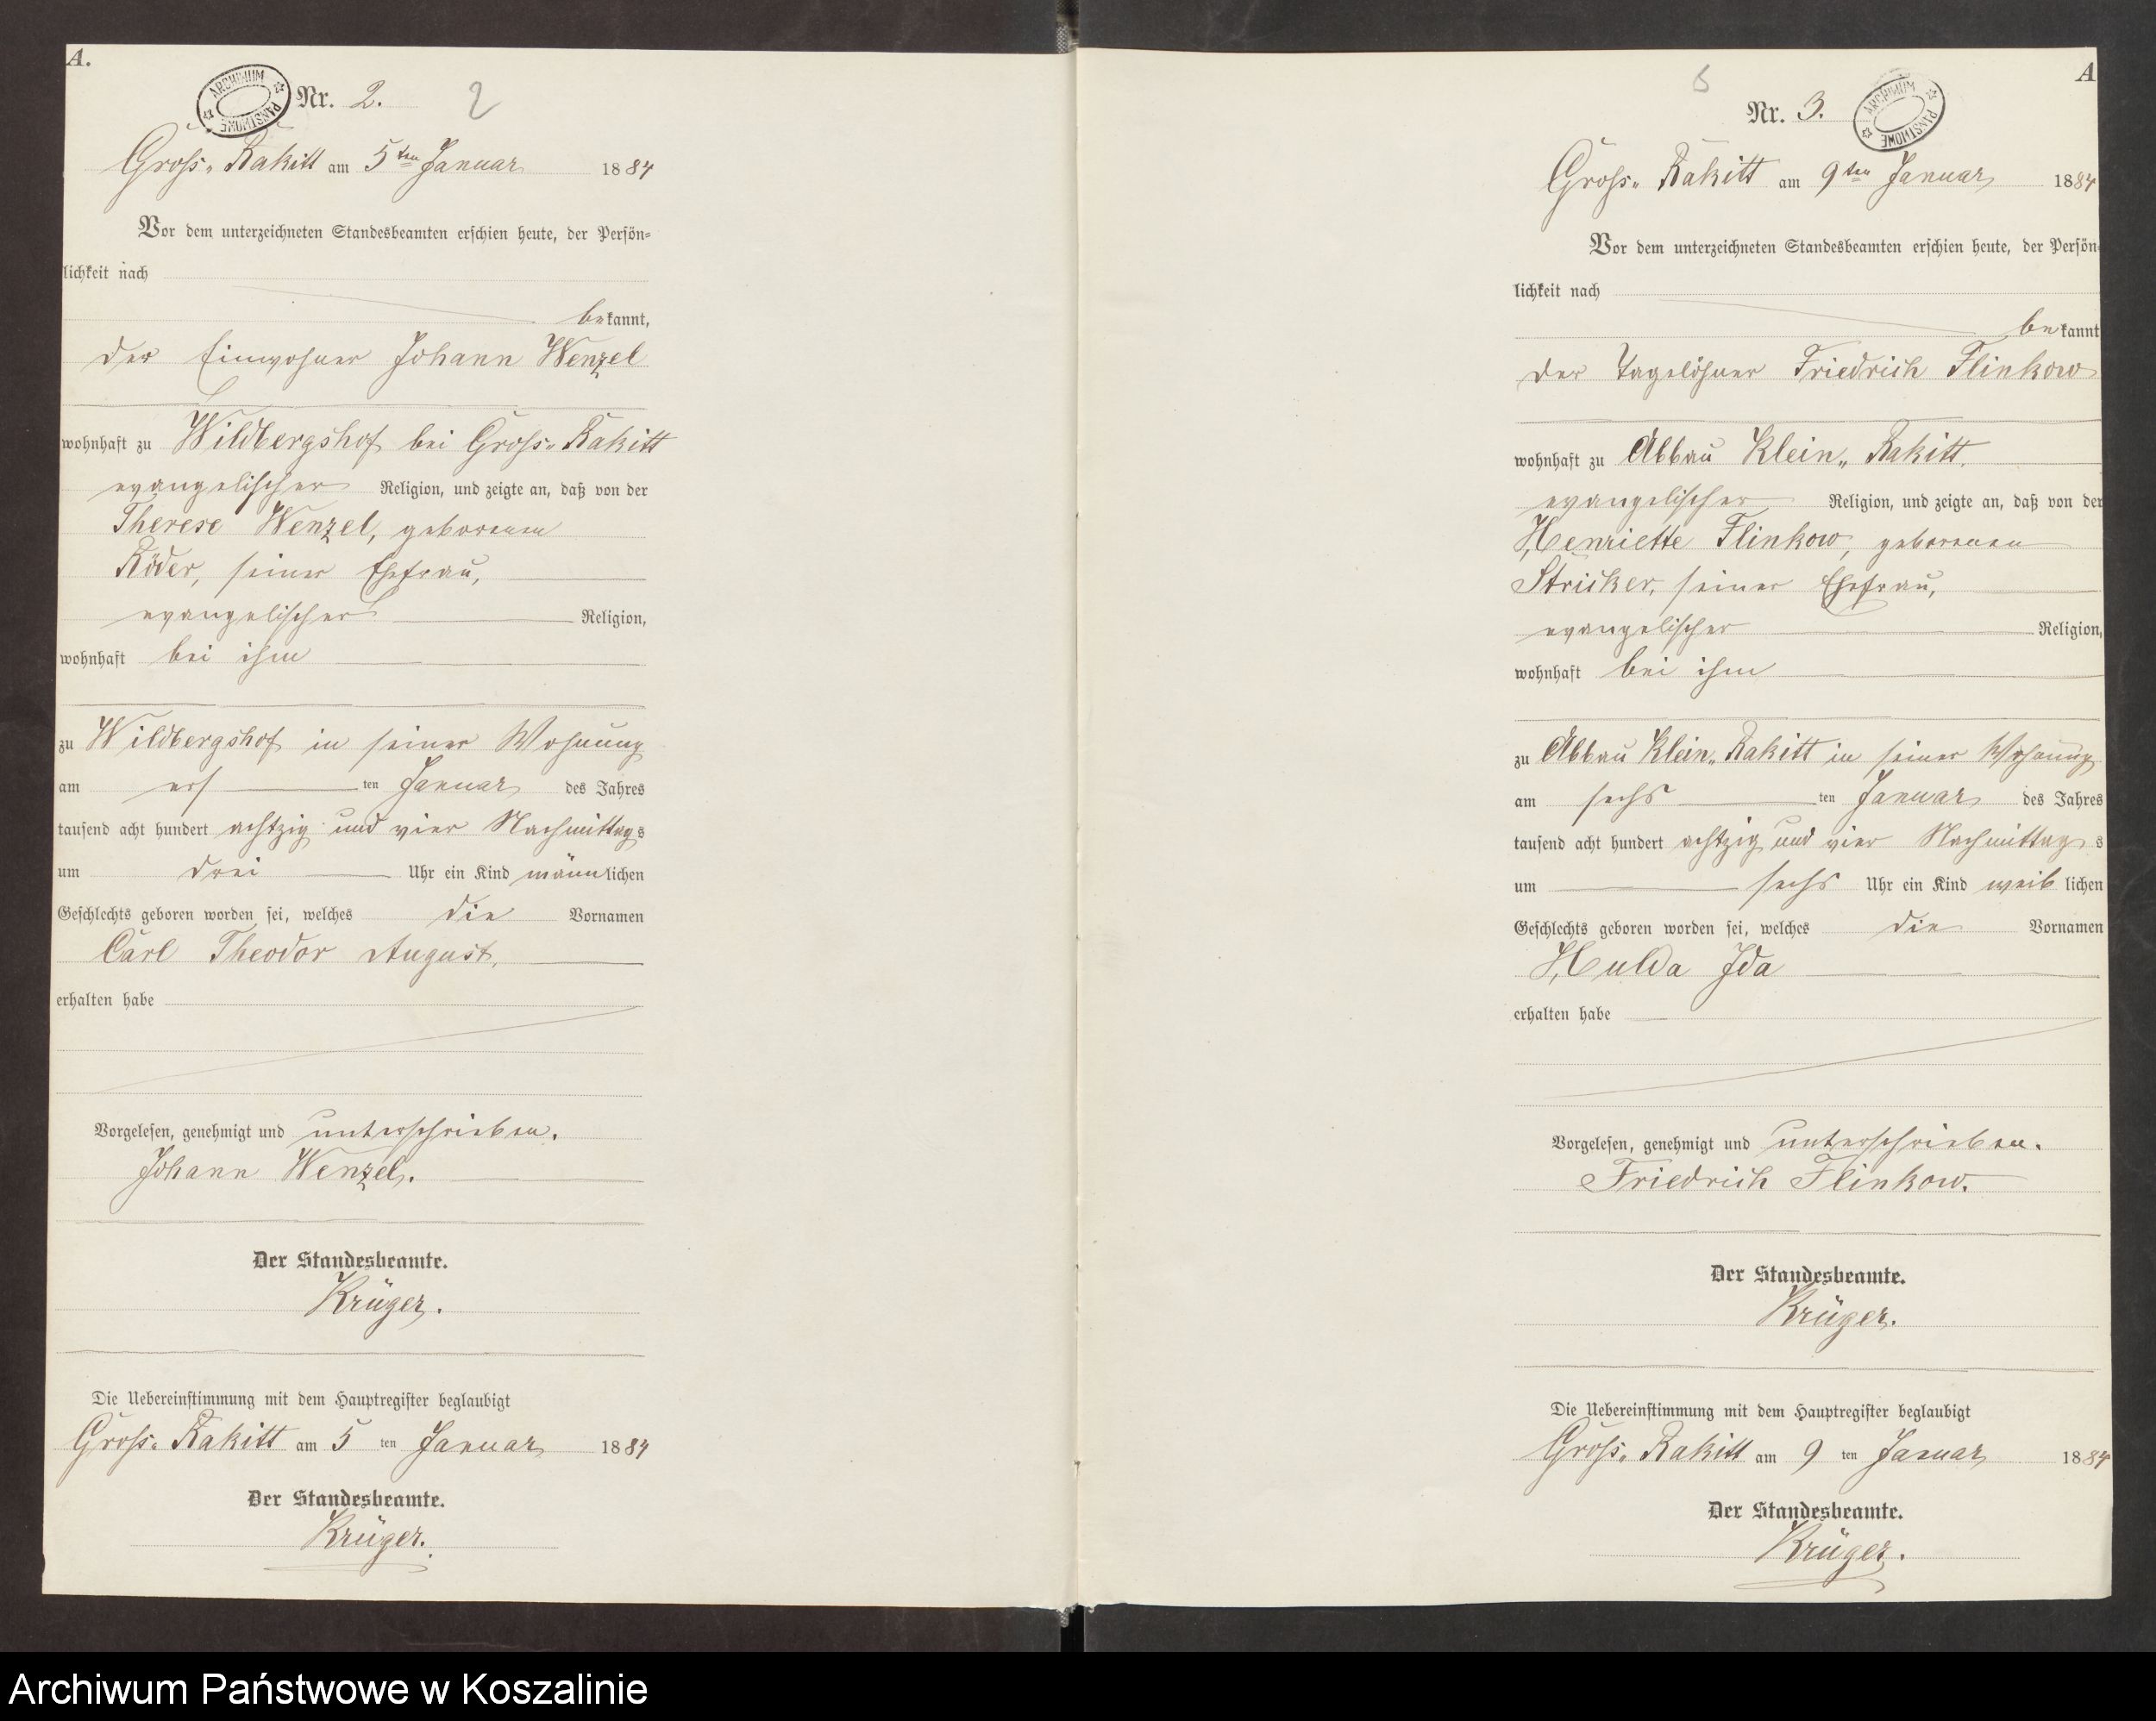 A.
ARCHIWUM PAŃSTWOWE
Nr. 2.
2
Gross-Rakitt am 5ten Januar 1884
Vor dem unterzeichneten Standesbeamten erschien heute, der Persön-
lichkeit nach
bekannt,
der Einwohner Johann Wenzel
wohnhaft zu Wildbergshof bei Gross-Rakitt
evangelischer Religion, und zeigte an, daß von der
Therese Wenzel, geborenen
Röder, seiner Ehefrau,
evangelischer Religion,
wohnhaft bei ihm
zu Wildbergshof in seiner Wohnung
am ersten Januar des Jahres
tausend acht hundert achtzig und vier Nachmittags
um drei Uhr ein Kind männlichen
Geschlechts geboren worden sei, welches die Vornamen
Carl Theodor August,
erhalten habe
Vorgelesen, genehmigt und unterschrieben.
Johann Wenzel.
Der Standesbeamte.
Krüger.
Die Uebereinstimmung mit dem Hauptregister beglaubigt
Gross-Rakitt am 5ten Januar 1884
Der Standesbeamte.
Krüger.
A
Nr. 3.
ARCHIWUM PAŃSTWOWE
Gross-Rakitt am 9ten Januar 1884
Vor dem unterzeichneten Standesbeamten erschien heute, der Persön
lichkeit nach
bekannt
der Tagelöhner Friedrich Flinkow
wohnhaft zu Abbau Klein-Rakitt.
evangelischer Religion, und zeigte an, daß von der
Henriette Flinkow, geborenen
Stricker, seiner Ehefrau,
evangelischer Religion,
wohnhaft bei ihm
zu Abbau Klein-Rakitt in seiner Wohnung
am sechsten Januar des Jahres
tausend acht hundert achtzig und vier Nachmittags
um sechs Uhr ein Kind weiblichen
Geschlechts geboren worden sei, welches die Vornamen
Hulda Ida
erhalten habe
Vorgelesen, genehmigt und unterschrieben.
Friedrich Flinkow.
Der Standesbeamte.
Krüger.
Die Uebereinstimmung mit dem Hauptregister beglaubigt
Gross-Rakitt am 9ten Januar 1884
Der Standesbeamte.
Krüger.
Archiwum Państwowe w Koszalinie